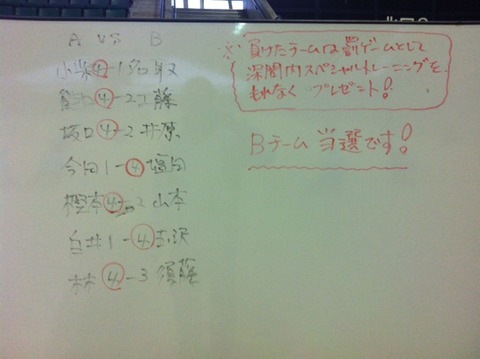 A VS B
小柴④-1名取
④-2工藤
坂口④-2井原
今田1-④塩田
樫本④-2山本
白井1-④吉沢
林④-3須藤
※負けたチームは罰ゲームとして
深関内スペシャルトレーニングを
もれなくプレゼント!
Bチーム当選です!